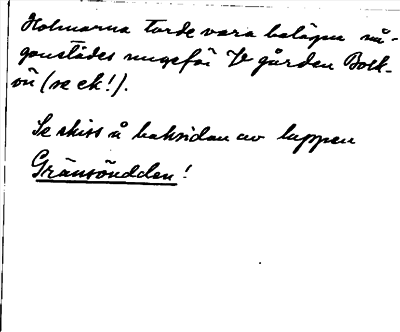 Holmarna torde vara belägna nå-
gonstädes ungefär V gården Bolk-
vii (se ek!).
Se skiss å baksidan av lappen
Gränsöudden!